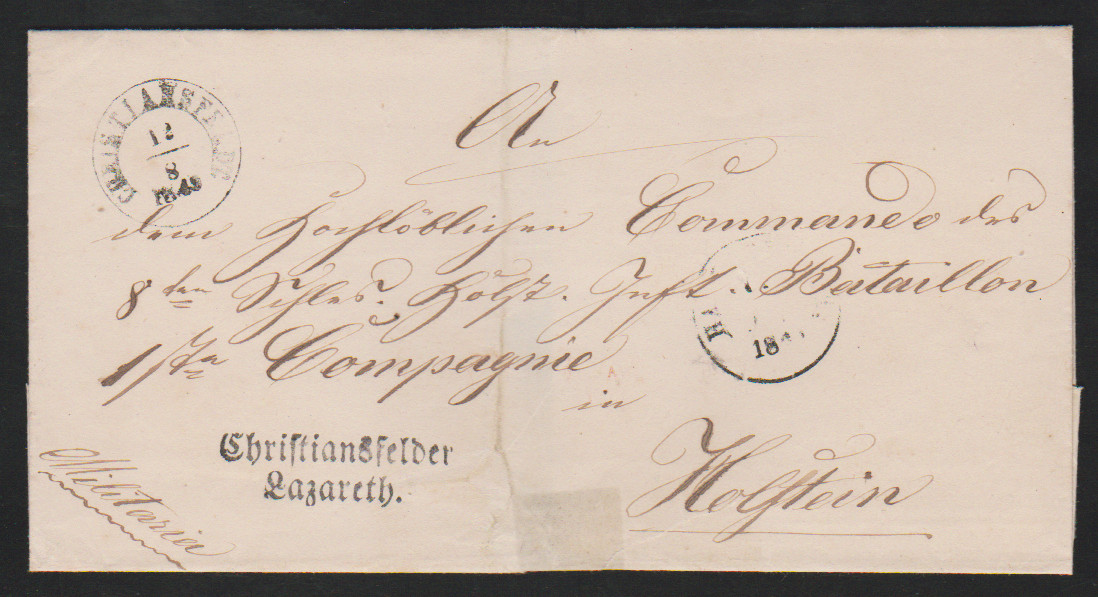 CHRISTIANSFELDE
12
8
1849
An
dem Hochlöblichen Commando des
8ten Schlesw. Holst. Inft. Bataillon
1sten Compagnie
in
Holstein
18
Christiansfelder
Lazareth.
Militaria